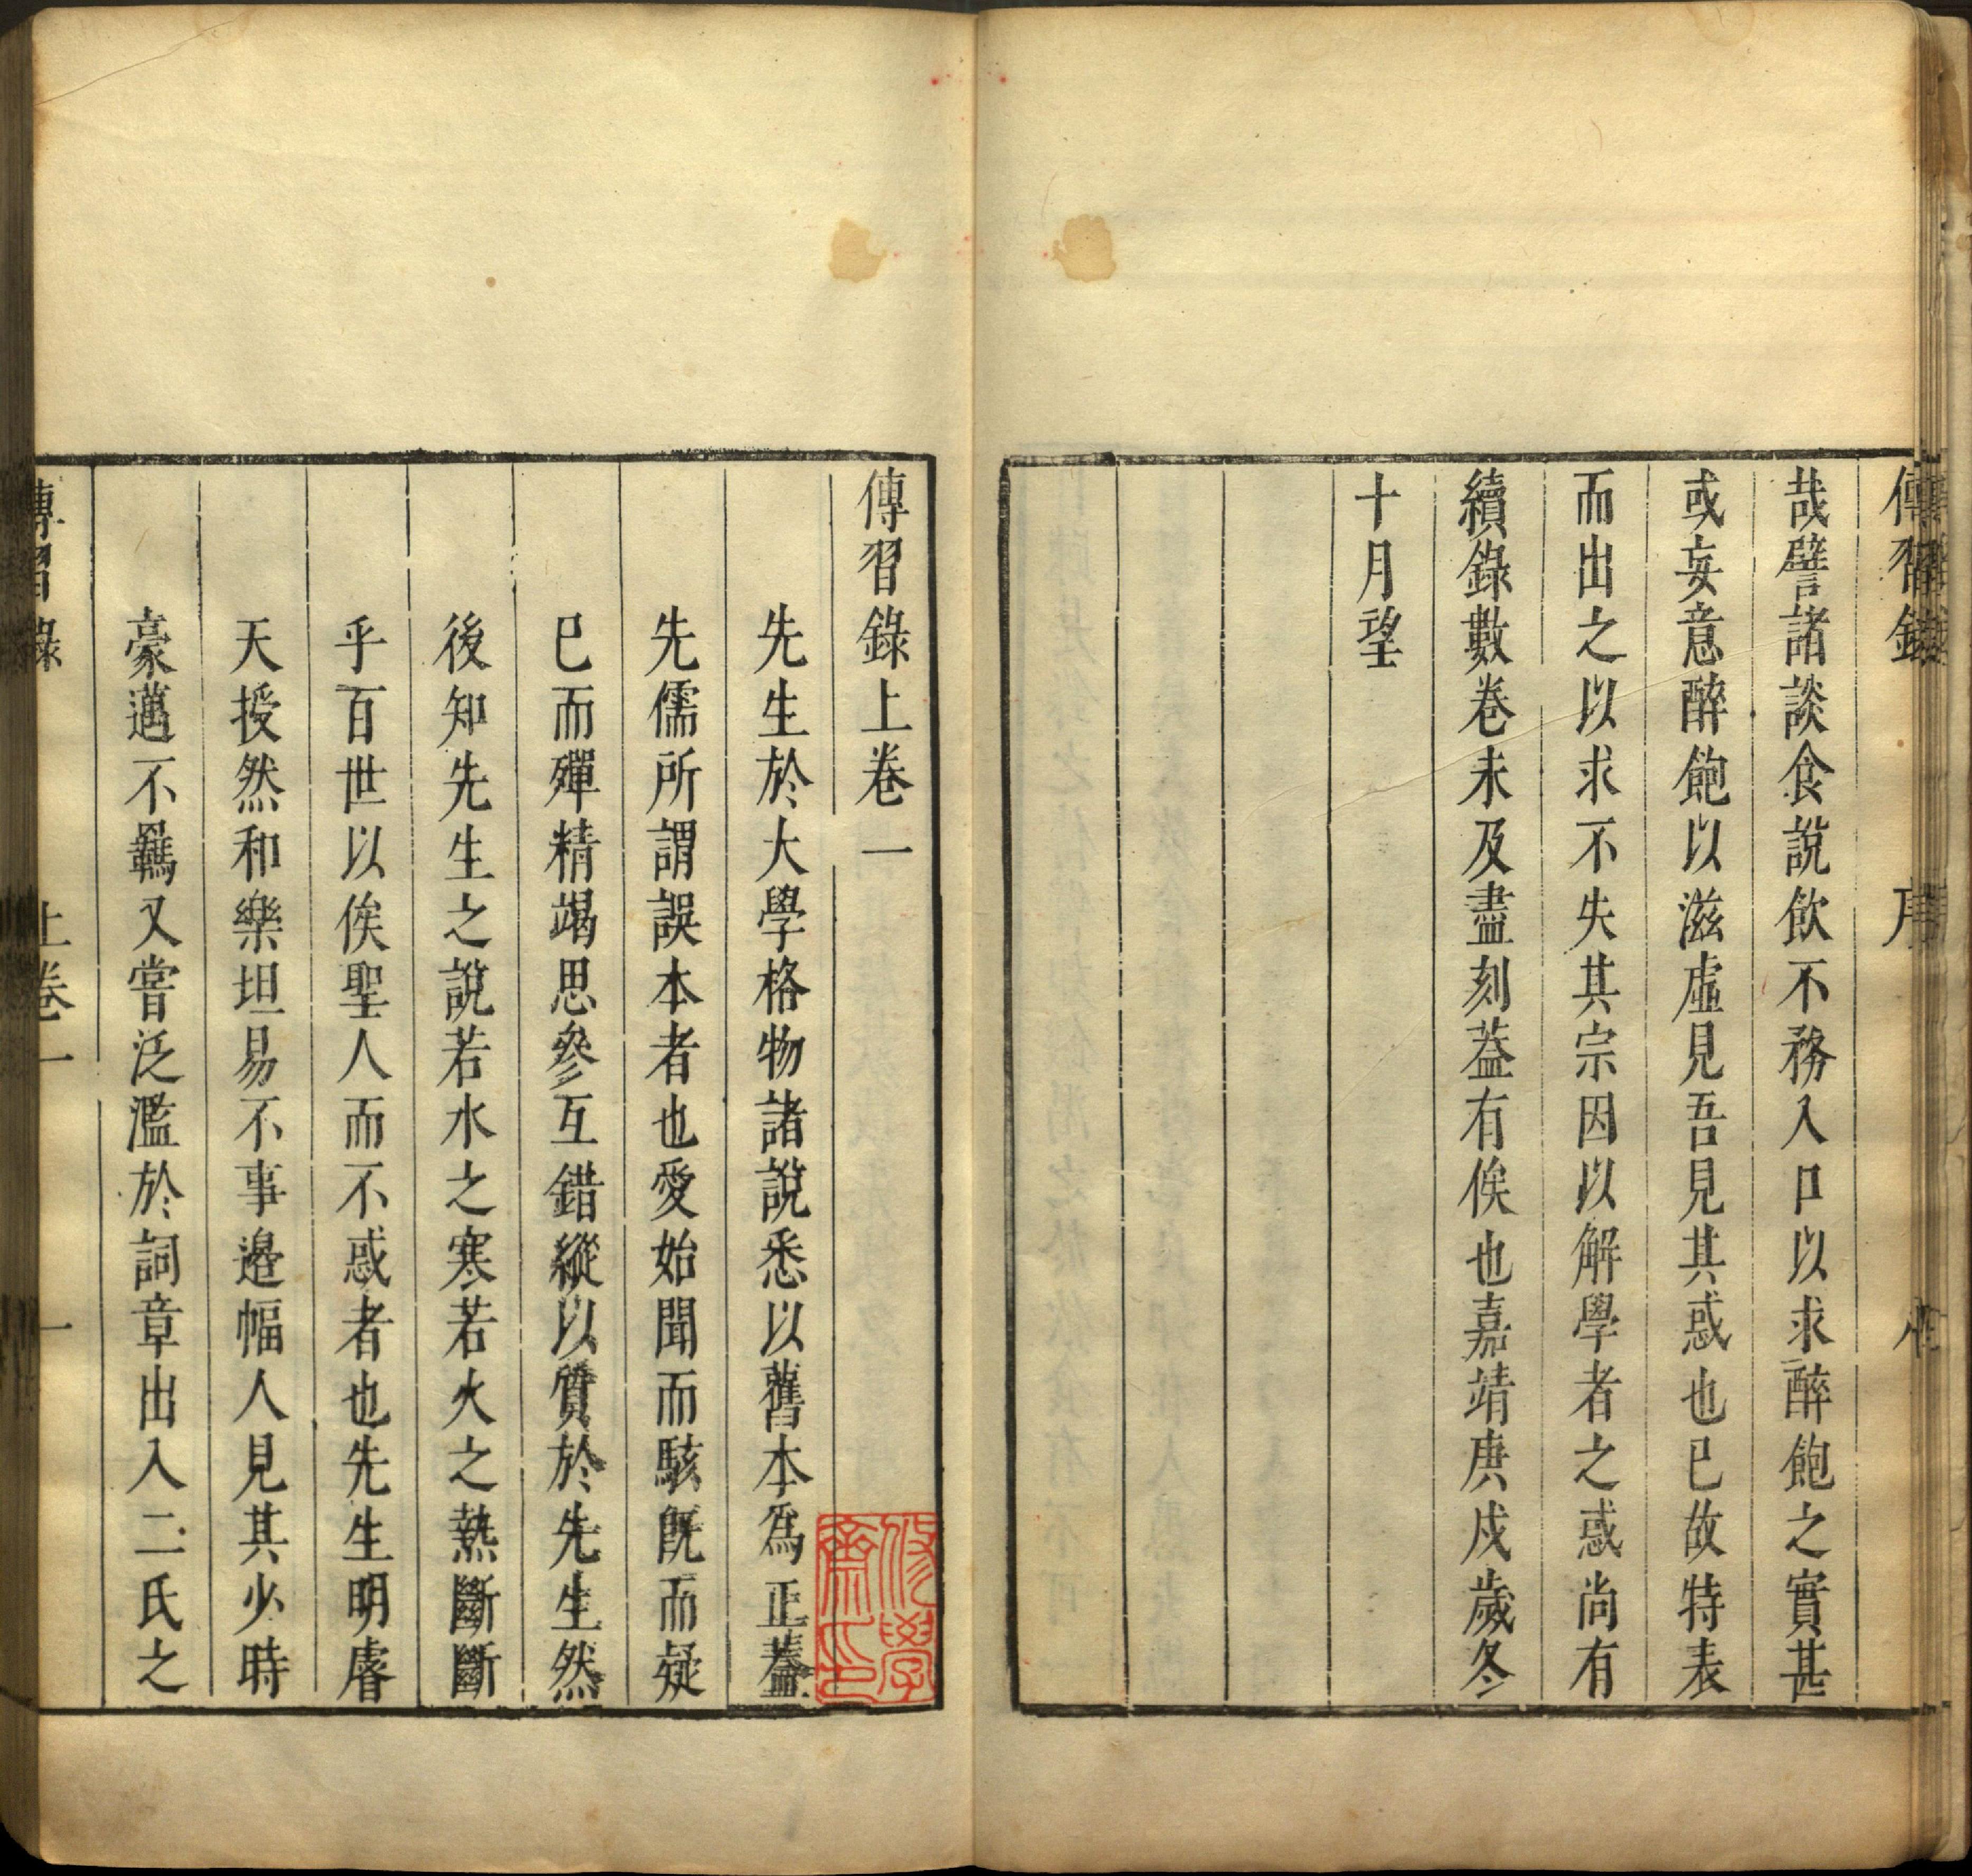 傳習錄
序
哉譬諸談食說飲不務入口以求醉飽之實甚
或妄意醉飽以滋虛見吾見其惑也已故特表
而出之以求不失其宗因以解學者之惑尚有
續錄數卷未及盡刻蓋有俟也嘉靖庚戌歲冬
十月望
傳習錄上卷一
先生於大學格物諸說悉以舊本爲正蓋
先儒所謂誤本者也愛始聞而駭旣而疑
已而殫精竭思參互錯縱以質於先生然
後知先生之說若水之寒若火之熱斷斷
乎百世以俟聖人而不惑者也先生明睿
天授然和樂坦易不事邉幅人見其少時
豪邁不羈又嘗泛濫於詞章出入二氏之
傳習錄
上卷一
一
修學
齋印